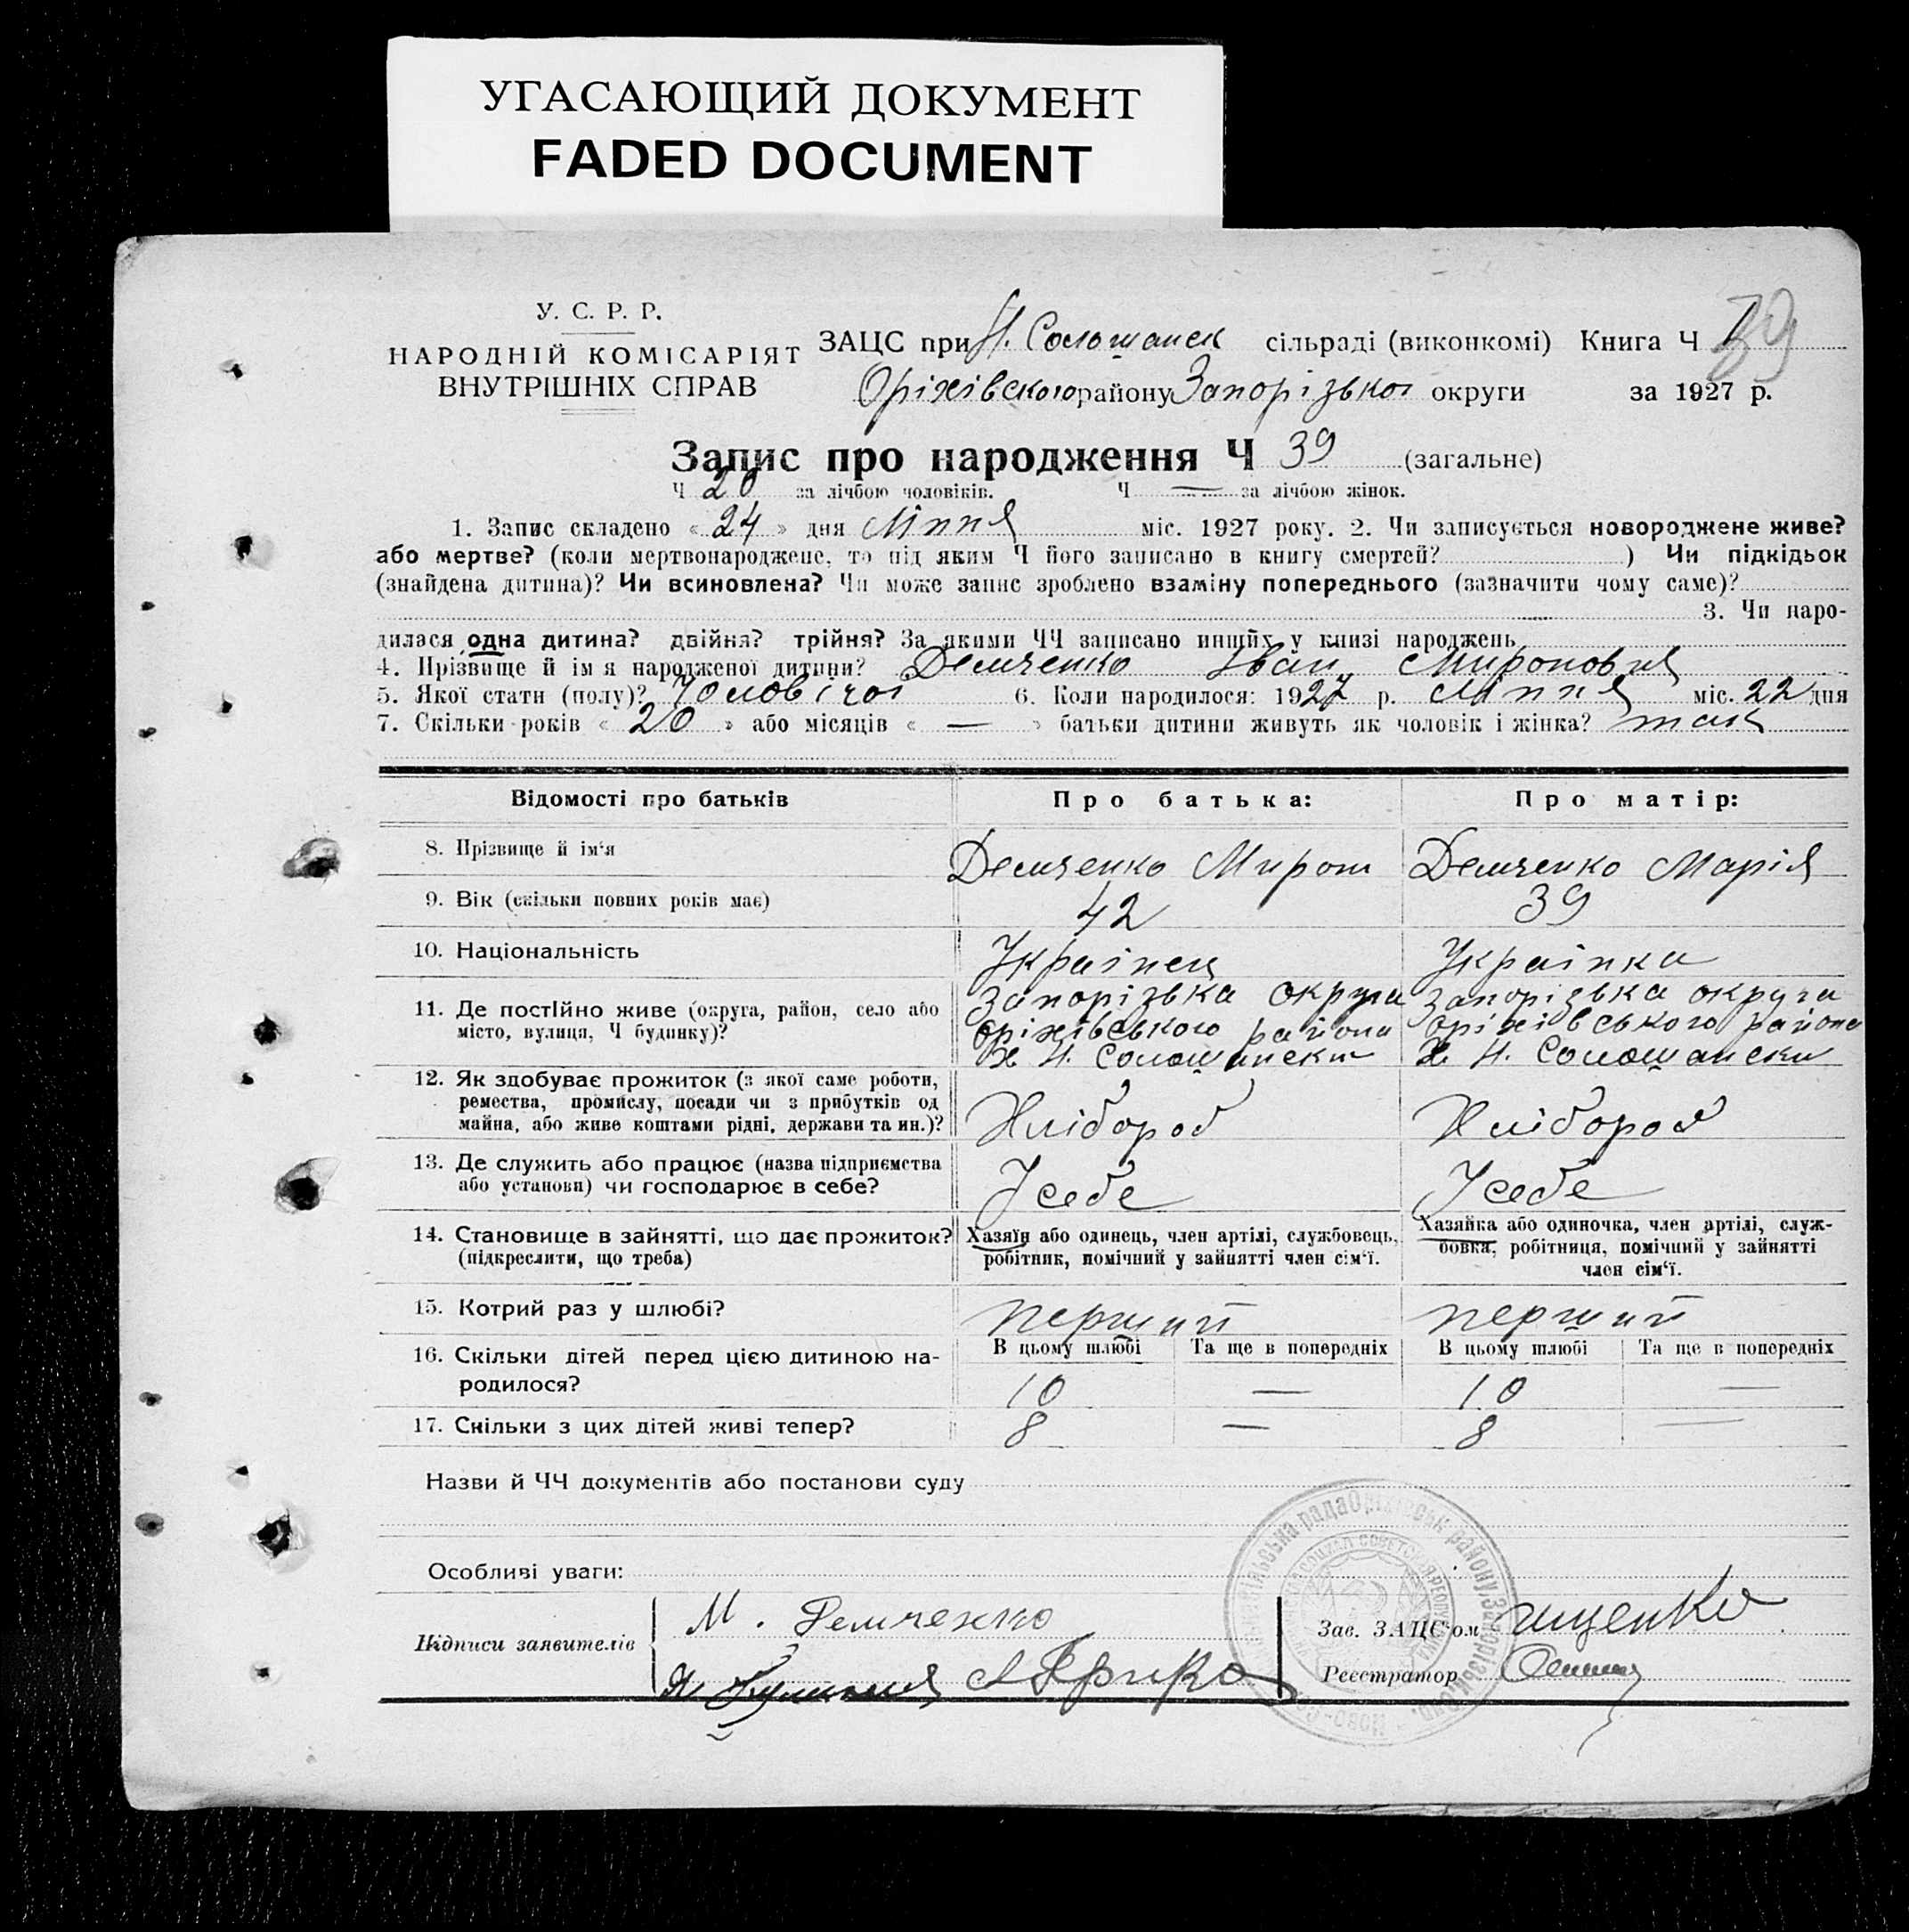 УГАСАЮЩИЙ ДОКУМЕНТ
FADED DOCUMENT
У. С. Р. Р.
НАРОДНІЙ КОМІСАРІЯТ
ВНУТРІШНІХ СПРАВ
ЗАЦС при Н. Солошанск сільраді (виконкомі) Книга Ч 1
39
Оріхівского району Запорізької округи за 1927 р.
Запис про народження Ч 39 (загальне)
Ч 20 за лічбою чоловіків. Ч — за лічбою жінок.
1. Запис складено « 24 » дня Липня міс. 1927 року. 2. Чи записується новороджене живе?
або мертве? (коли мертвонароджене, то під яким Ч його записано в книгу смертей? ) Чи підкідьок
(знайдена дитина)? Чи всиновлена? Чи може запис зроблено взаміну попереднього (зазначити чому саме)?
3. Чи наро-
дилася одна дитина? двійня? трійня? За якими ЧЧ записано инших у книзі народжень
4. Прізвище й ім я народженої дитини? Демченко Іван Миронович
5. Якої стати (полу)? Чоловічої 6. Коли народилося: 1927 р. Липня міс. 22 дня
7. Скільки років « 20 » або місяців « — » батьки дитини живуть як чоловік і жінка? так
Відомості про батьків Про батька: Про матір:
8. Прізвище й ім‘я Демченко Мирон Демченко Марія
9. Вік (скільки повних років має) 42 39
10. Національність Українец Українка
11. Де постійно живе (округа, район, село або місто, вулиця, Ч будинку)?
Запорізька округа Запорізька округа
Оріхівського района Оріхівського района
Х Н. Солошански Х Н. Солошански
12. Як здобуває прожиток (з якої саме роботи,
ремества, промислу, посади чи з прибутків од
майна, або живе коштами рідні, держави та ин.)?
Хлібороб Хлібороб
13. Де служить або працює (назва підприємства
або установи) чи господарює в себе?
Усебе Усебе
14. Становище в зайнятті, що дає прожиток?
(підкреслити, що треба)
Хазяїн або одинець, член артілі, службовець,
робітник, помічний у зайнятті член сім‘ї.
Хазяйка або одиночка, член артілі, служ-
бовка, робітниця, помічний у зайнятті
член сім‘ї.
15. Котрий раз у шлюбі? перший перший
16. Скільки дітей перед цією дитиною на-
родилося?
В цьому шлюбі Та ще в попередніх В цьому шлюбі Та ще в попередніх
10 — 10 —
17. Скільки з цих дітей живі тепер? 8 — 8 —
Назви й ЧЧ документів або постанови суду
Особливі уваги:
Підписи заявителів
М. Демченко
Зав. ЗАЦС‘ом Ищенко
Реєстратор